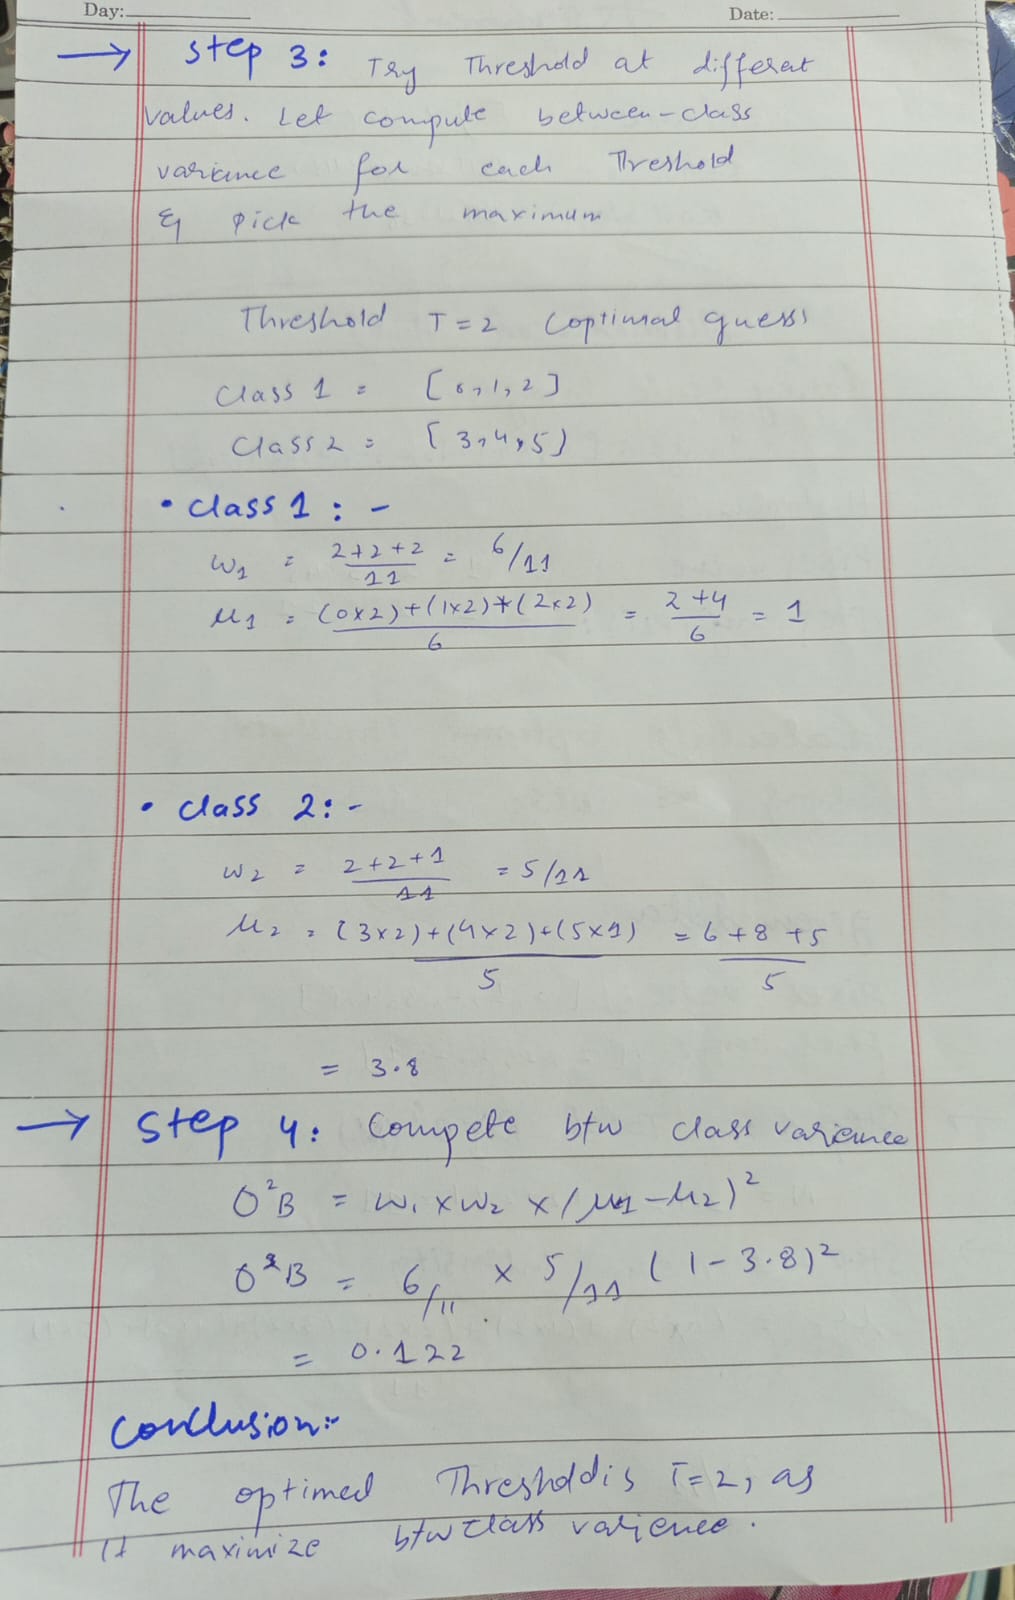 Day:
Date:
→ Step 3: Try Threshold at differet
values. Let compute between-class
varience for each Threshold
& pick the maximum
Threshold T=2 (optimal guess)
Class 1 = [0,1,2]
Class 2 = [3,4,5]
• Class 1 : -
w₁ = 2+2+2/11 = 6/11
μ₁ = (0x2)+(1x2)+(2x2)/6 = 2+4/6 = 1
• Class 2: -
w₂ = 2+2+1/11 = 5/11
μ₂ = (3x2)+(4x2)+(5x1)/5 = 6+8+5/5
= 3.8
→ Step 4: Compete btw class varience
σ²B = w₁ x w₂ x (μ₁-μ₂)²
σ²B = 6/11 x 5/11 (1-3.8)²
= 0.122
Conclusion:-
The optimed Threshold is T=2, as
It maximize btw class varience.